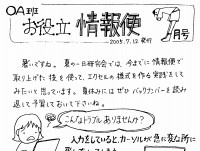 OA班
お役立ち情報便
7月号
—2005.7.12 発行
暑いですね。夏の一日研究会では、今までに情報便で
取り上げた技を使って、エクセルの様式を作る実践をして
みたいと思っています。夏休みにはぜひバックナンバーを読み
返して予習しておいて下さいね。
こんなトラブルありませんか?
入力をしていると、カーソルが急に変な所に